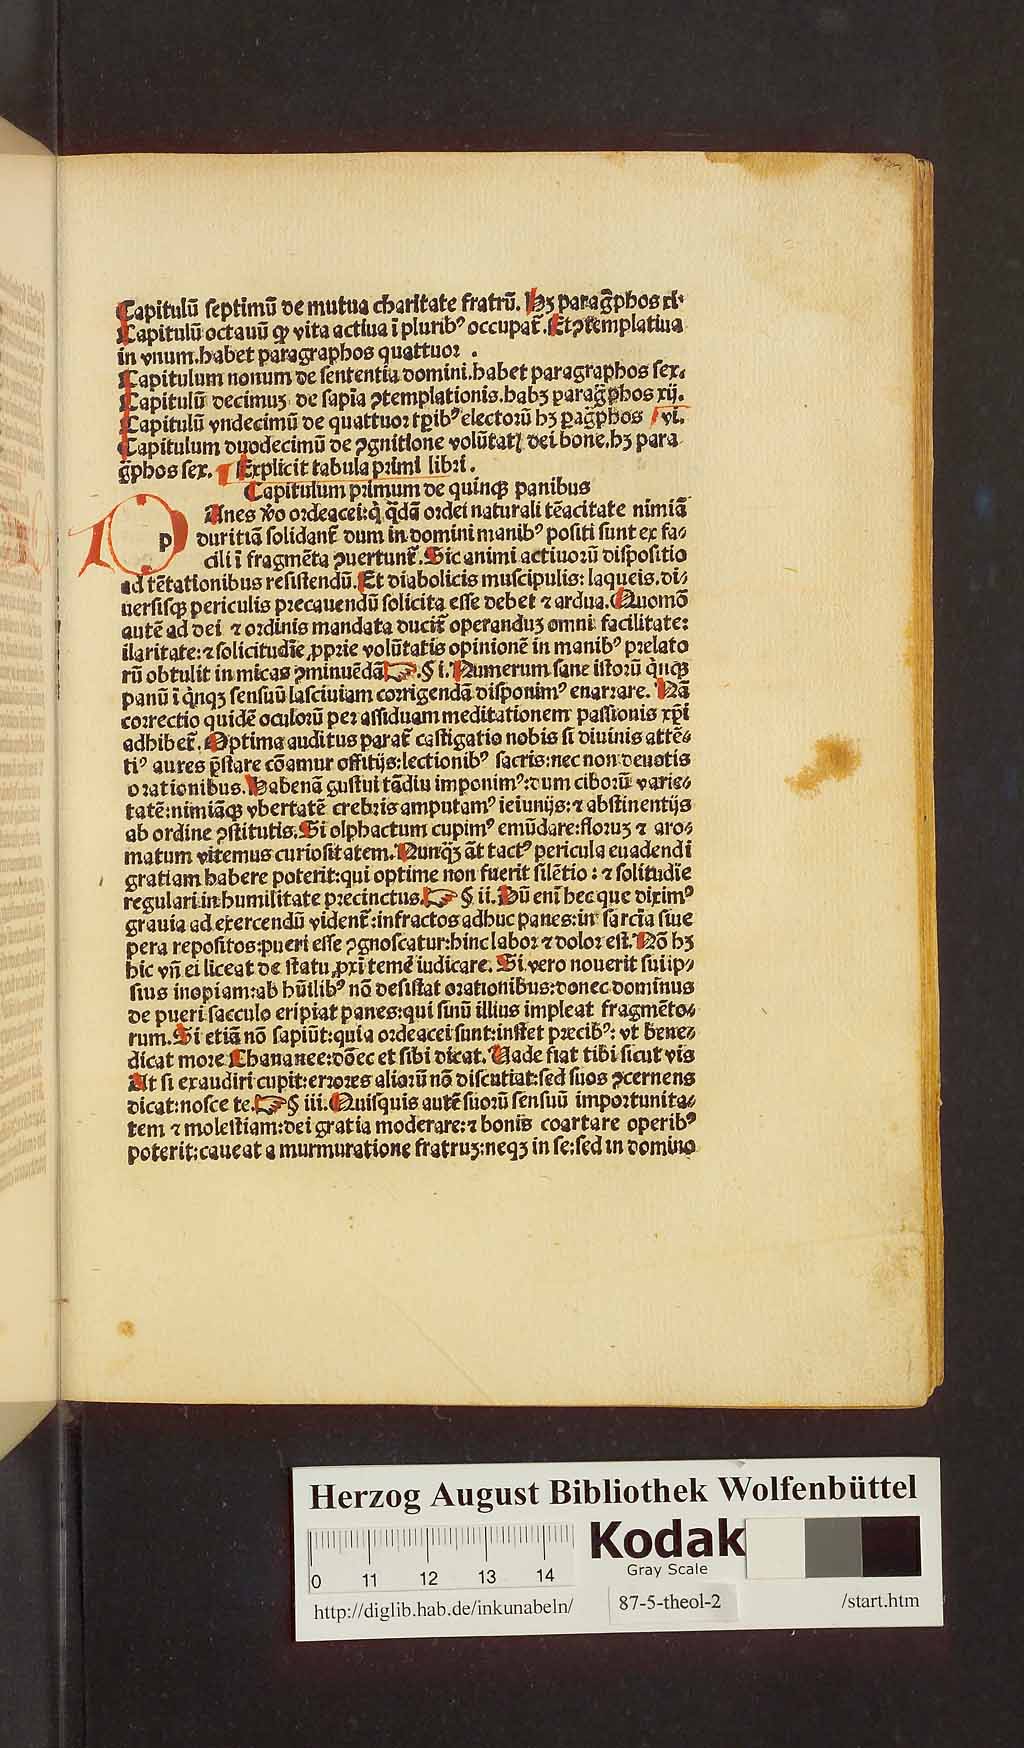 Capitulū septimū de mutua charitate fratrū. Hꝫ parag̃phos xi·
Capitulū octauū ꝙ vita actiua ī pluribꝰ occupat̃. Et ꝯtemplatiua
in vnum. habet paragraphos quattuor .
Capitulum nonum de sententia domini. habet paragraphos sex.
Capitulū decimuꝫ de sapīa ꝯtemplationis. habꝫ parag̃phos xij.
Capitulū vndecimū de quattuor tꝑibꝰ electorū hꝫ ꝑag̃phos vi.
Capitulum duodecimū de ꝯgnitione volūtatꝭ dei bone. hꝫ para
g̃phos sex. Explicit tabula primi libri .
Capitulum primum de quinqꝫ panibus
pAnes v̾o ordeacei: q̇ q̇dā ordei naturali tēacitate nimiā
duritiā solidant̃ dum in domini manibꝰ positi sunt ex fa⸗
cili ī fragmēta ꝯuertunt̃. Sic animi actiuorū dispositio
ad tētationibus resistendū. Et diabolicis muscipulis: laqueis. di⸗
uersisqꝫ periculis precauendū solicita esse debet ⁊ ardua. Quomō
autē ad dei ⁊ ordinis mandata ducit̃ operanduꝫ omni facilitate:
ilaritate: ⁊ solicitudīe ꝓprie volūtatis opinionē in manibꝰ prelato
rū obtulit in micas ꝯminuēdā ☞ .§ i. Numerum sane istorū q̇nqꝫ
panū ī q̇nqꝫ sensuū lasciuiam corrigendā disponimꝰ enarrare. Nā
correctio quidē oculorū per assiduam meditationem passionis xp̄i
adhibet̃. Optima auditus parat̃ castigatio nobis si diuinis attē⸗
tiꝰ aures p̄stare cōamur offitijs: lectionibꝰ sacris: nec non deuotis
orationibus. Habenā gustui tādiu imponimꝰ: dum ciborū varie⸗
tatē: nimiāqꝫ vbertatē crebris amputamꝰ ieiunijs: ⁊ abstinentijs
ab ordine ꝯstitutis. Si olphactum cupimꝰ emūdare: floruꝫ ⁊ aro⸗
matum vitemus curiositatem. Nunq̄ꝫ āt tactꝰ pericula euadendi
gratiam habere poterit: qui optime non fuerit silētio: ⁊ solitudīe
regulari in humilitate precinctus. ☞ § ii. Dū enī hec que diximꝰ
grauia ad exercendū vident̃: infractos adhuc panes: in sarcīa siue
pera repositos: pueri esse ꝯgnoscatur: hinc labor ⁊ dolor est. Nō hꝫ
hic vn̄ ei liceat de statu ꝓxī temē iudicare. Si vero nouerit sui ip⸗
sius inopiam: ab hūilibꝰ nō desistat orationibus: donec dominus
de pueri sacculo eripiat panes: qui sinū illius impleat fragmēto⸗
rum. Si etiā nō sapiūt: quia ordeacei sunt: instet precibꝰ: vt bene⸗
dicat more Chananee: dōec et sibi dicat. Uade fiat tibi sicut vis
At si exaudiri cupit: errores aliorū nō discutiat: sed suos ꝯcernens
dicat: nosce te. ☞ § iii. Quisquis autē suorū sensuū importunita⸗
tem ⁊ molestiam: dei gratia moderare: ⁊ bonis coartare operibꝰ
poterit: caueat a murmuratione fratruꝫ: neqꝫ in se: sed in domino
Herzog August Bibliothek Wolfenbüttel
Kodak
Gray Scale
0 11 12 13 14
http://diglib.hab.de/inkunabeln/ 87-5-theol-2 /start.htm